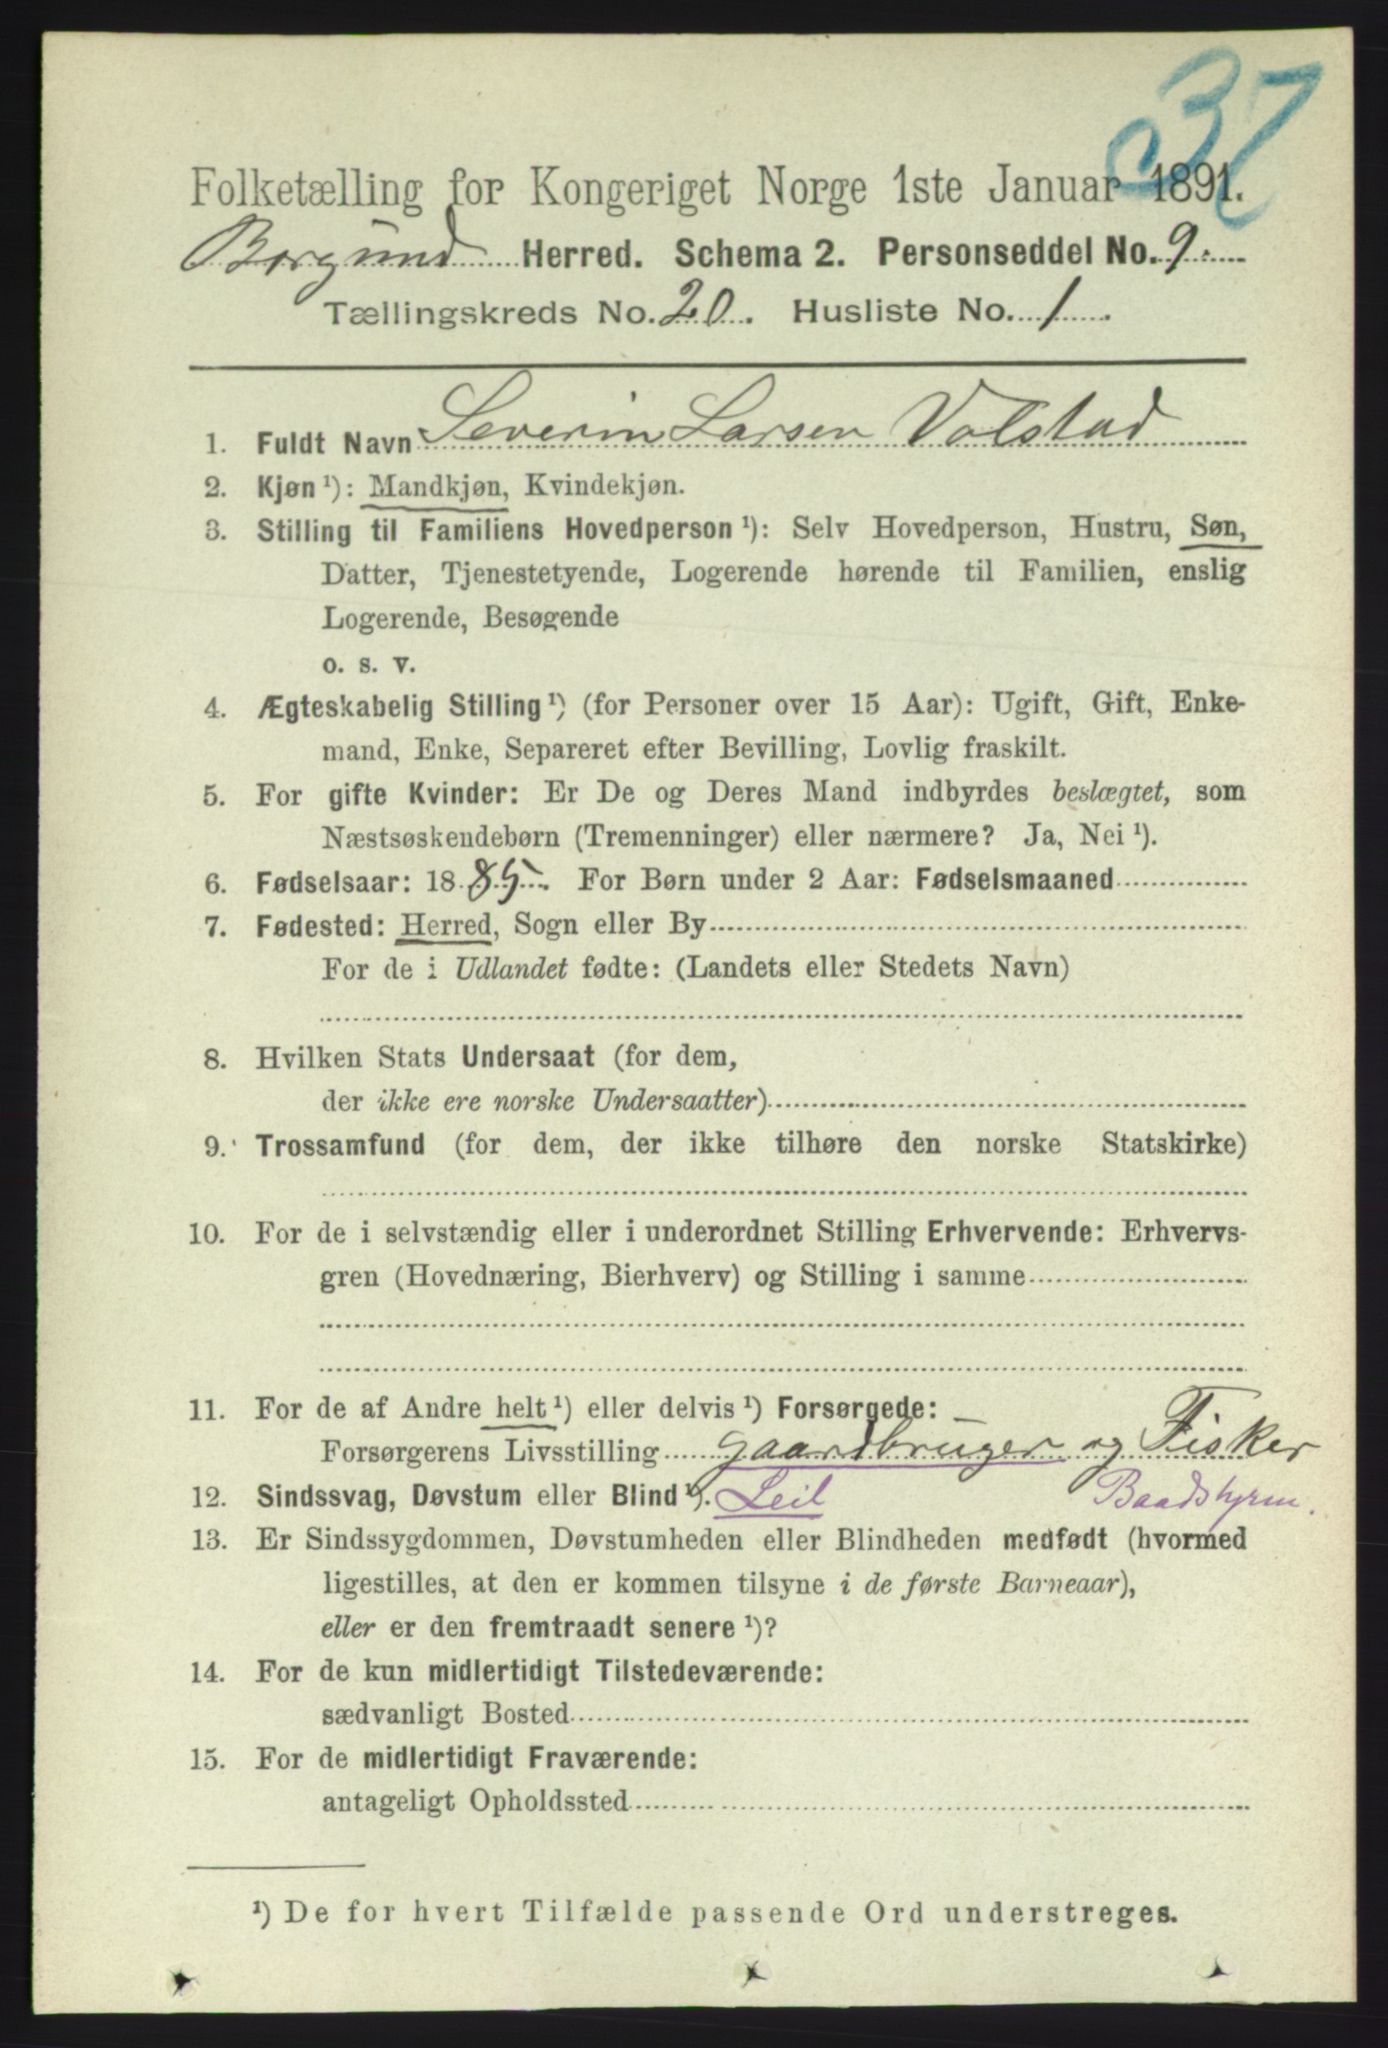 37
Folketælling for Kongeriget Norge 1ste Januar 1891.
Borgund Herred. Schema 2. Personseddel No. 9.
Tællingskreds No. 20. Husliste No. 1.
1. Fuldt Navn Severin Larsen Volstad
2. Kjøn ¹): Mandkjøn, Kvindekjøn.
3. Stilling til Familiens Hovedperson ¹): Selv Hovedperson, Hustru, Søn,
Datter, Tjenestetyende, Logerende hørende til Familien, enslig
Logerende, Besøgende
o. s. v.
4. Ægteskabelig Stilling ¹) (for Personer over 15 Aar): Ugift, Gift, Enke-
mand, Enke, Separeret efter Bevilling, Lovlig fraskilt.
5. For gifte Kvinder: Er De og Deres Mand indbyrdes beslægtet, som
Næstsøskendebørn (Tremenninger) eller nærmere? Ja, Nei ¹).
6. Fødselsaar: 1885. For Børn under 2 Aar: Fødselsmaaned
7. Fødested: Herred, Sogn eller By
For de i Udlandet fødte: (Landets eller Stedets Navn)
8. Hvilken Stats Undersaat (for dem,
der ikke ere norske Undersaatter)
9. Trossamfund (for dem, der ikke tilhøre den norske Statskirke)
10. For de i selvstændig eller i underordnet Stilling Erhvervende: Erhvervs-
gren (Hovednæring, Bierhverv) og Stilling i samme
11. For de af Andre helt ¹) eller delvis ¹) Forsørgede:
Forsørgerens Livsstilling gaardbruger og Fisker
12. Sindssvag, Døvstum eller Blind ¹). Leil Baadstyrer.
13. Er Sindssygdommen, Døvstumheden eller Blindheden medfødt (hvormed
ligestilles, at den er kommen tilsyne i de første Barneaar),
eller er den fremtraadt senere ¹)?
14. For de kun midlertidigt Tilstedeværende:
sædvanligt Bosted
15. For de midlertidigt Fraværende:
antageligt Opholdssted
¹) De for hvert Tilfælde passende Ord understreges.